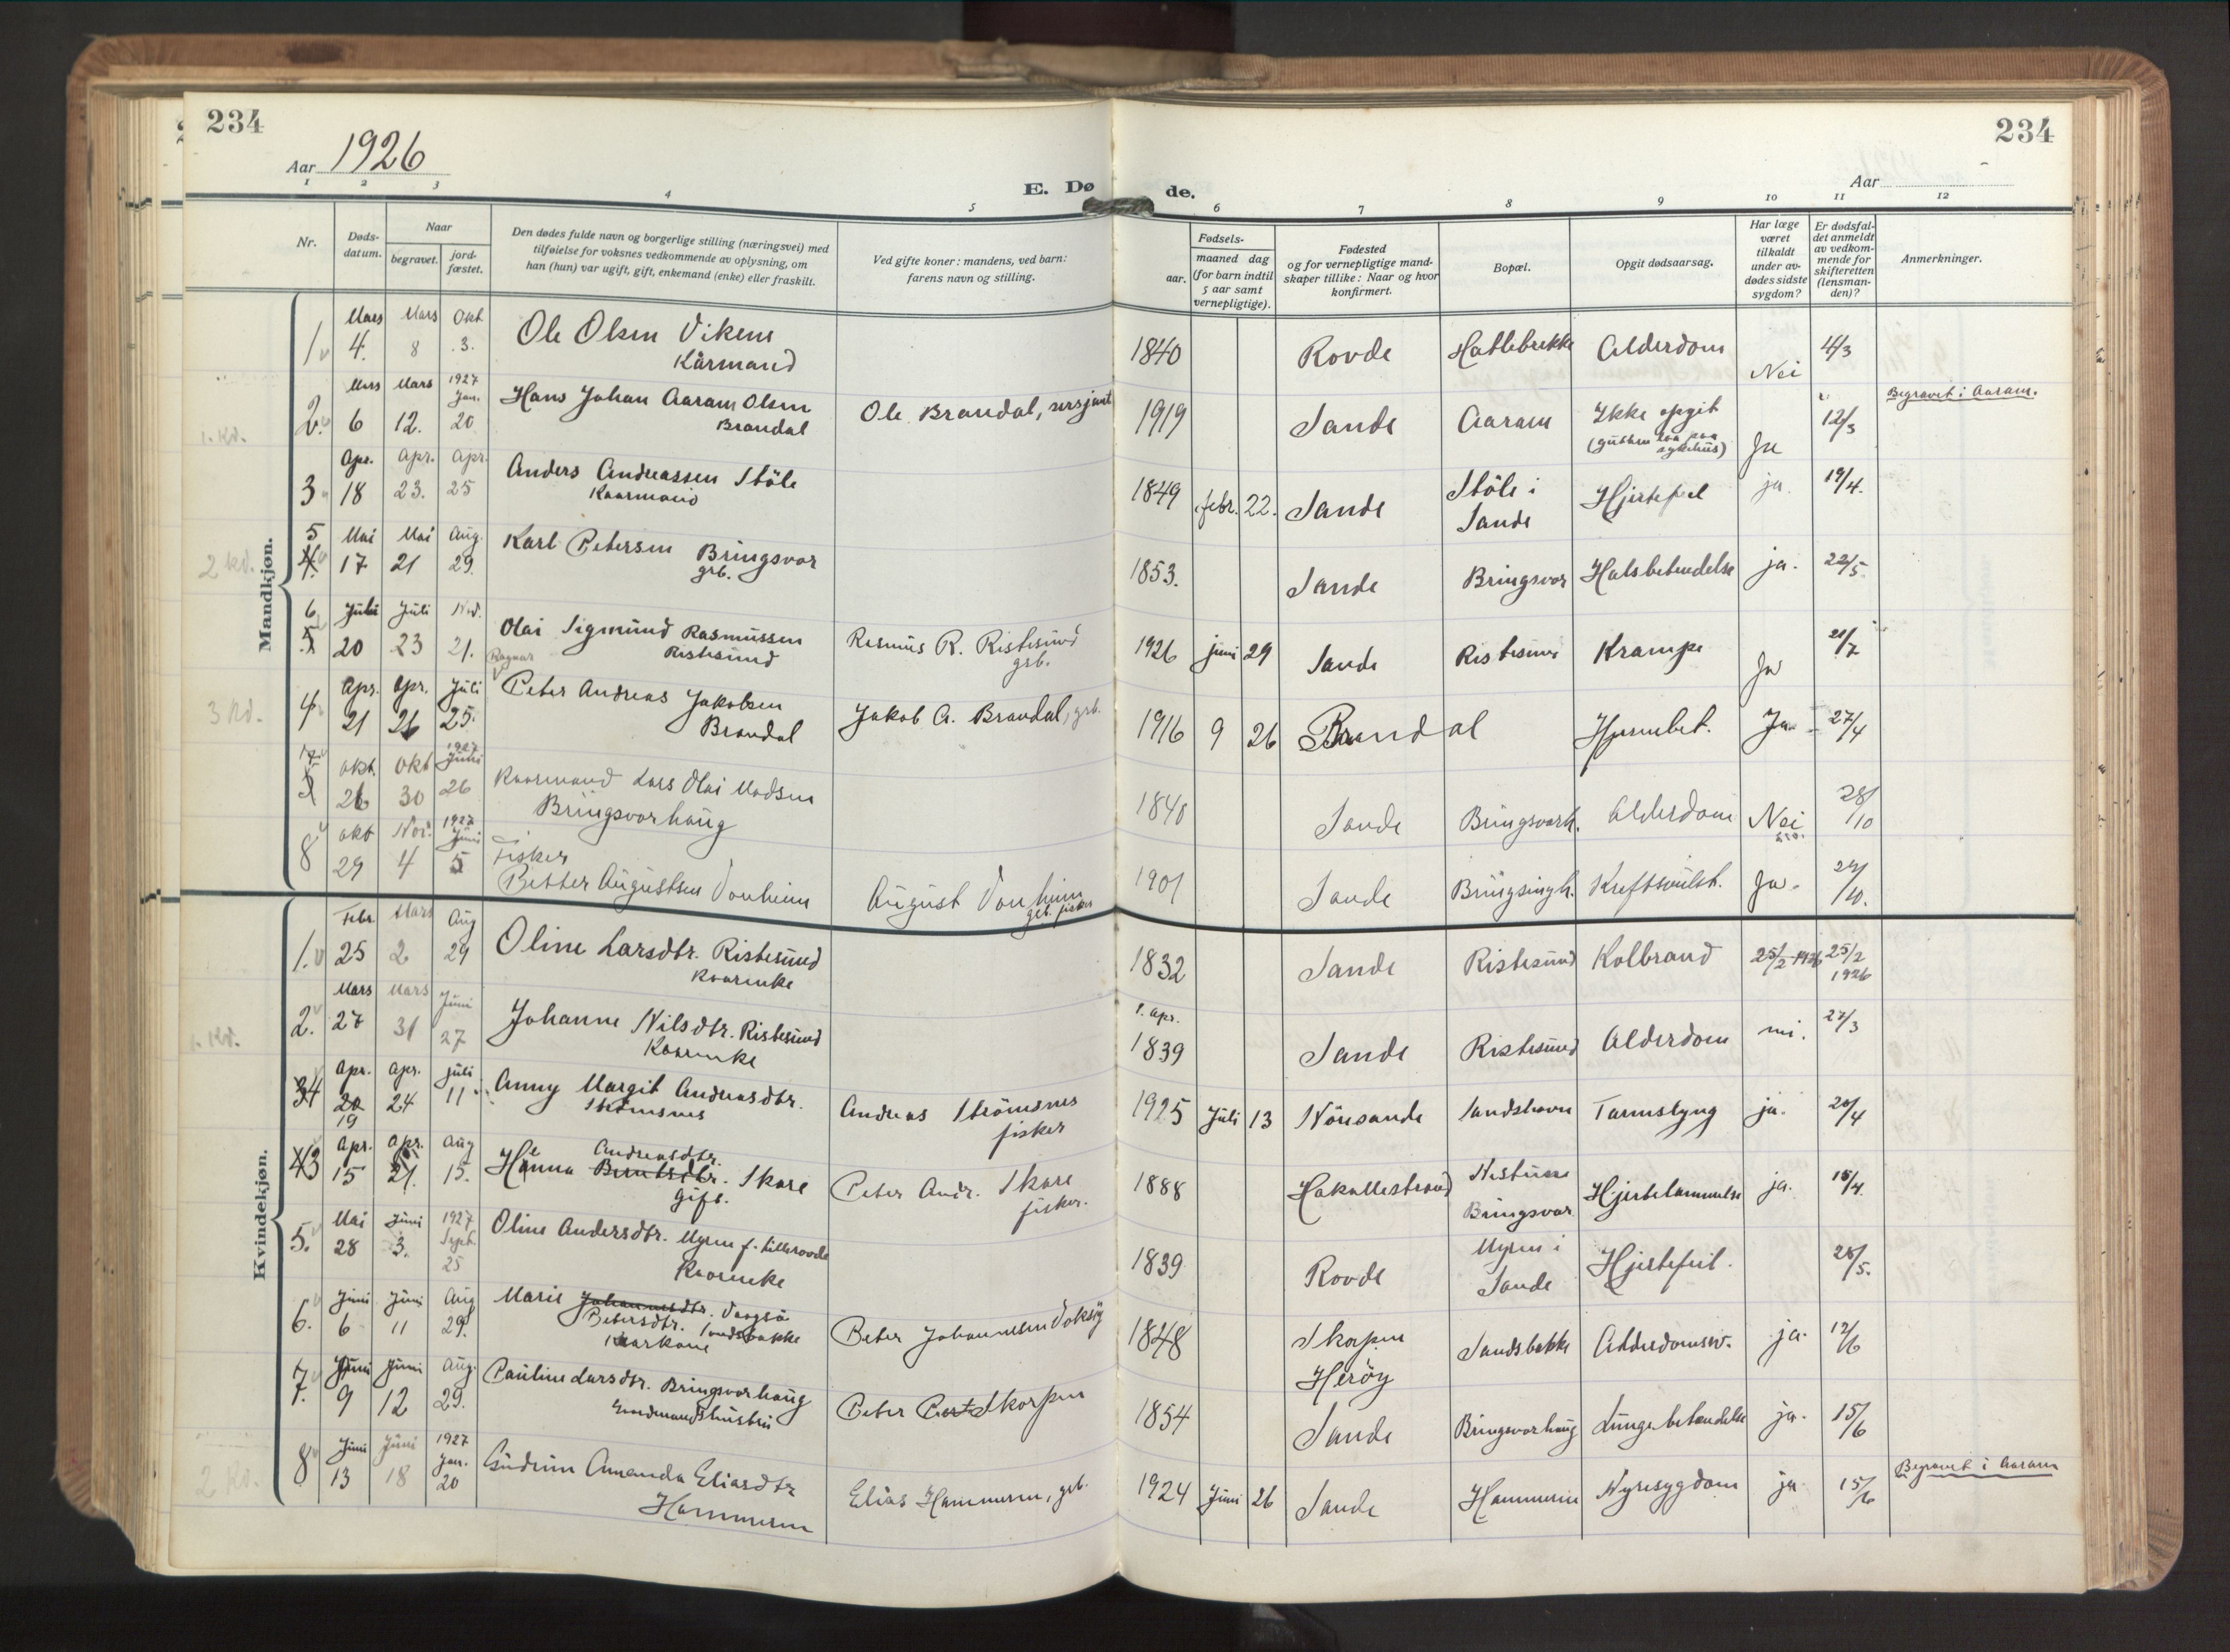 234
234
Aar 1926
Aar
E. Dø
de.
1 2 3 4 5 6 7 8 9 10 11 12
Nr.
Døds-
datum.
Naar
begravet.
jord-
fæstet.
Den dødes fulde navn og borgerlige stilling (næringsvei) med
tilføielse for voksnes vedkommende av oplysning, om
han (hun) var ugift, gift, enkemand (enke) eller fraskilt.
Ved gifte koner: mandens, ved barn:
farens navn og stilling.
Fødsels-
aar.
maaned dag
(for barn indtil
5 aar samt
vernepligtige).
Fødested
og for vernepligtige mand-
skaper tillike: Naar og hvor
konfirmert.
Bopæl.
Opgit dødsaarsag.
Har læge
været
tilkaldt
under av-
dødes sidste
sygdom?
Er dødsfal-
det anmeldt
av vedkom-
mende for
skifteretten
(lensman-
den)?
Anmerkninger.
Mandkjøn.
Mars Mars Okt
1 4. 8 3. Ole Olsen Vikens 1840 Rovde Hatlebrekke Alderdom Nei 4/3
Kårmand
Mars Mars 1927 Jan.
1. Kd. 2. 6 12. 20 Hans Johan Aaram Olsen Ole Brandal, sersjant 1919 Sande Aaram Ikke opgit Ja 12/3 Begravet i Aaram.
Brandal (gutten laa paa sykehus)
Apr. Apr. Apr.
3 18 23. 25 Anders Andreassen Støle 1849 febr. 22. Sande Støle i Sande Hjertefeil ja. 19/4.
Kaarmand
5 Mai Mai Aug.
2 Kd. 4. 17 21 29. Karl Petersen Bringsvor 1853. Sande Bringsvor Halsbetendelse ja. 22/5.
grb.
6 Juli Juli Nov.
5 20 23 21. Olai Sigmund Rasmussen Rasmus R. Ristesund 1926 juni 29 Sande Ristesund Krampe Ja 21/7
Ragnar Ristesund grb.
Apr. Apr. Juli
3 Kd. 4 21 26 25. Peter Andreas Jakobsen Jakob A. Brandal, grb. 1916 9 26 Brandal Hjernebet. Ja 27/4
Brandal
7 okt. okt 1927 Juni
26 30 26 Kaarmand Lars Olai Madsen 1840 Sande Bringsvorh. Alderdom Nei 28/10
Bringsvorhaug
okt Nov. 1927 Juni
8 29 4 5 Fisker
Petter Augustsen Vonheim August Vonheim 1901 Sande Kreftsvulst. Ja. 29/10.
grb. fisker
Kvindekjøn.
Febr Mars Aug
1. 25 2 29 Oline Larsdtr. Ristesund 1832 Sande Ristesund Kolbrand 25/2 1926 25/2 1926
Kaarenke
Mars Mars Juni 1. Apr.
1. Kd. 2. 27 31 27 Johanne Nilsdtr. Ristesund 1839 Sande Ristesund Alderdom nei. 27/3
Kaarenke
Apr. Apr. juli
34 20 24 11 Anny Margit Andreasdtr. Andreas Strømsnes 1925 Juli 13 Nöresande Sandshavn Tarmslyng ja. 20/4
19 Strömsnes fisker
Apr. Apr. Aug Andreasdtr.
43 15 21. 15. Henna Berntsdtr. Skare Peter Andr. Skare 1888 Hakallestrand Bringsvor Hjertelammelse ja. 15/4.
Gift. fisker.
Mai Juni 1927 Sept
5. 28 3. 25 Oline Andersdtr. Myren f. Lillerovde 1839 Rovde Myren i Sande Hjertefeil. 28/5.
Kaarenke
Juni Juni Aug
6. 6 11 29. Marie Johannesdtr. Vaagsø Peter Johannesen Voksöy 1848 Skorpen Herøy Sandsbakke Alderdomssv. ja. 12/6
Petersdtr. Sandsbakke
Kaarkone
Juni Juni Aug.
7. 9 12 29. Pauline Larsdtr. Bringsvorhaug Peter Skorpen 1854 Sande Bringsvorhaug Lungebetændelse ja. 15/6
Juni Juni 1927 Jan.
2 Kd. 8 13 18 20 Gudrun Amanda Eliasdtr Elias Hammeren, grb. 1924 Juni 26 Sande Hammeren Nyresygdom ja 15/6 Begravet i Aaram
Hammeren